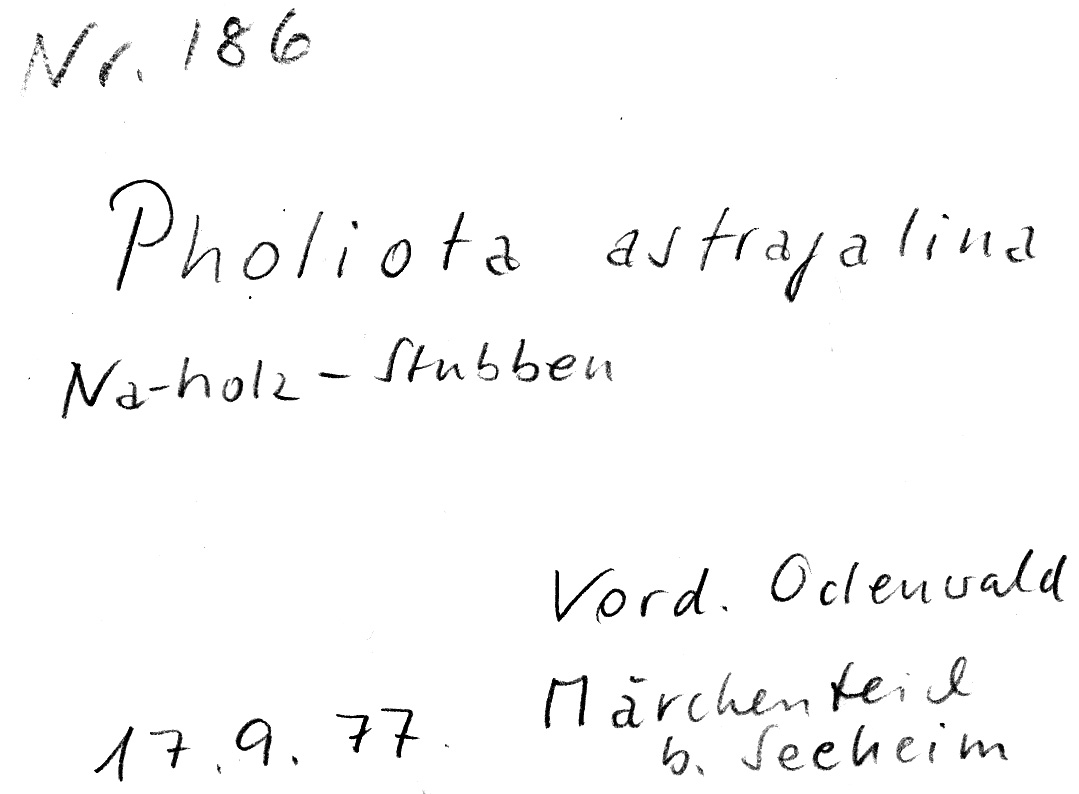 Nr. 186
Pholiota astragalina
Na-holz - Stubben
Vord. Odenwald
Märchenteich
b. Seeheim
17.9.77